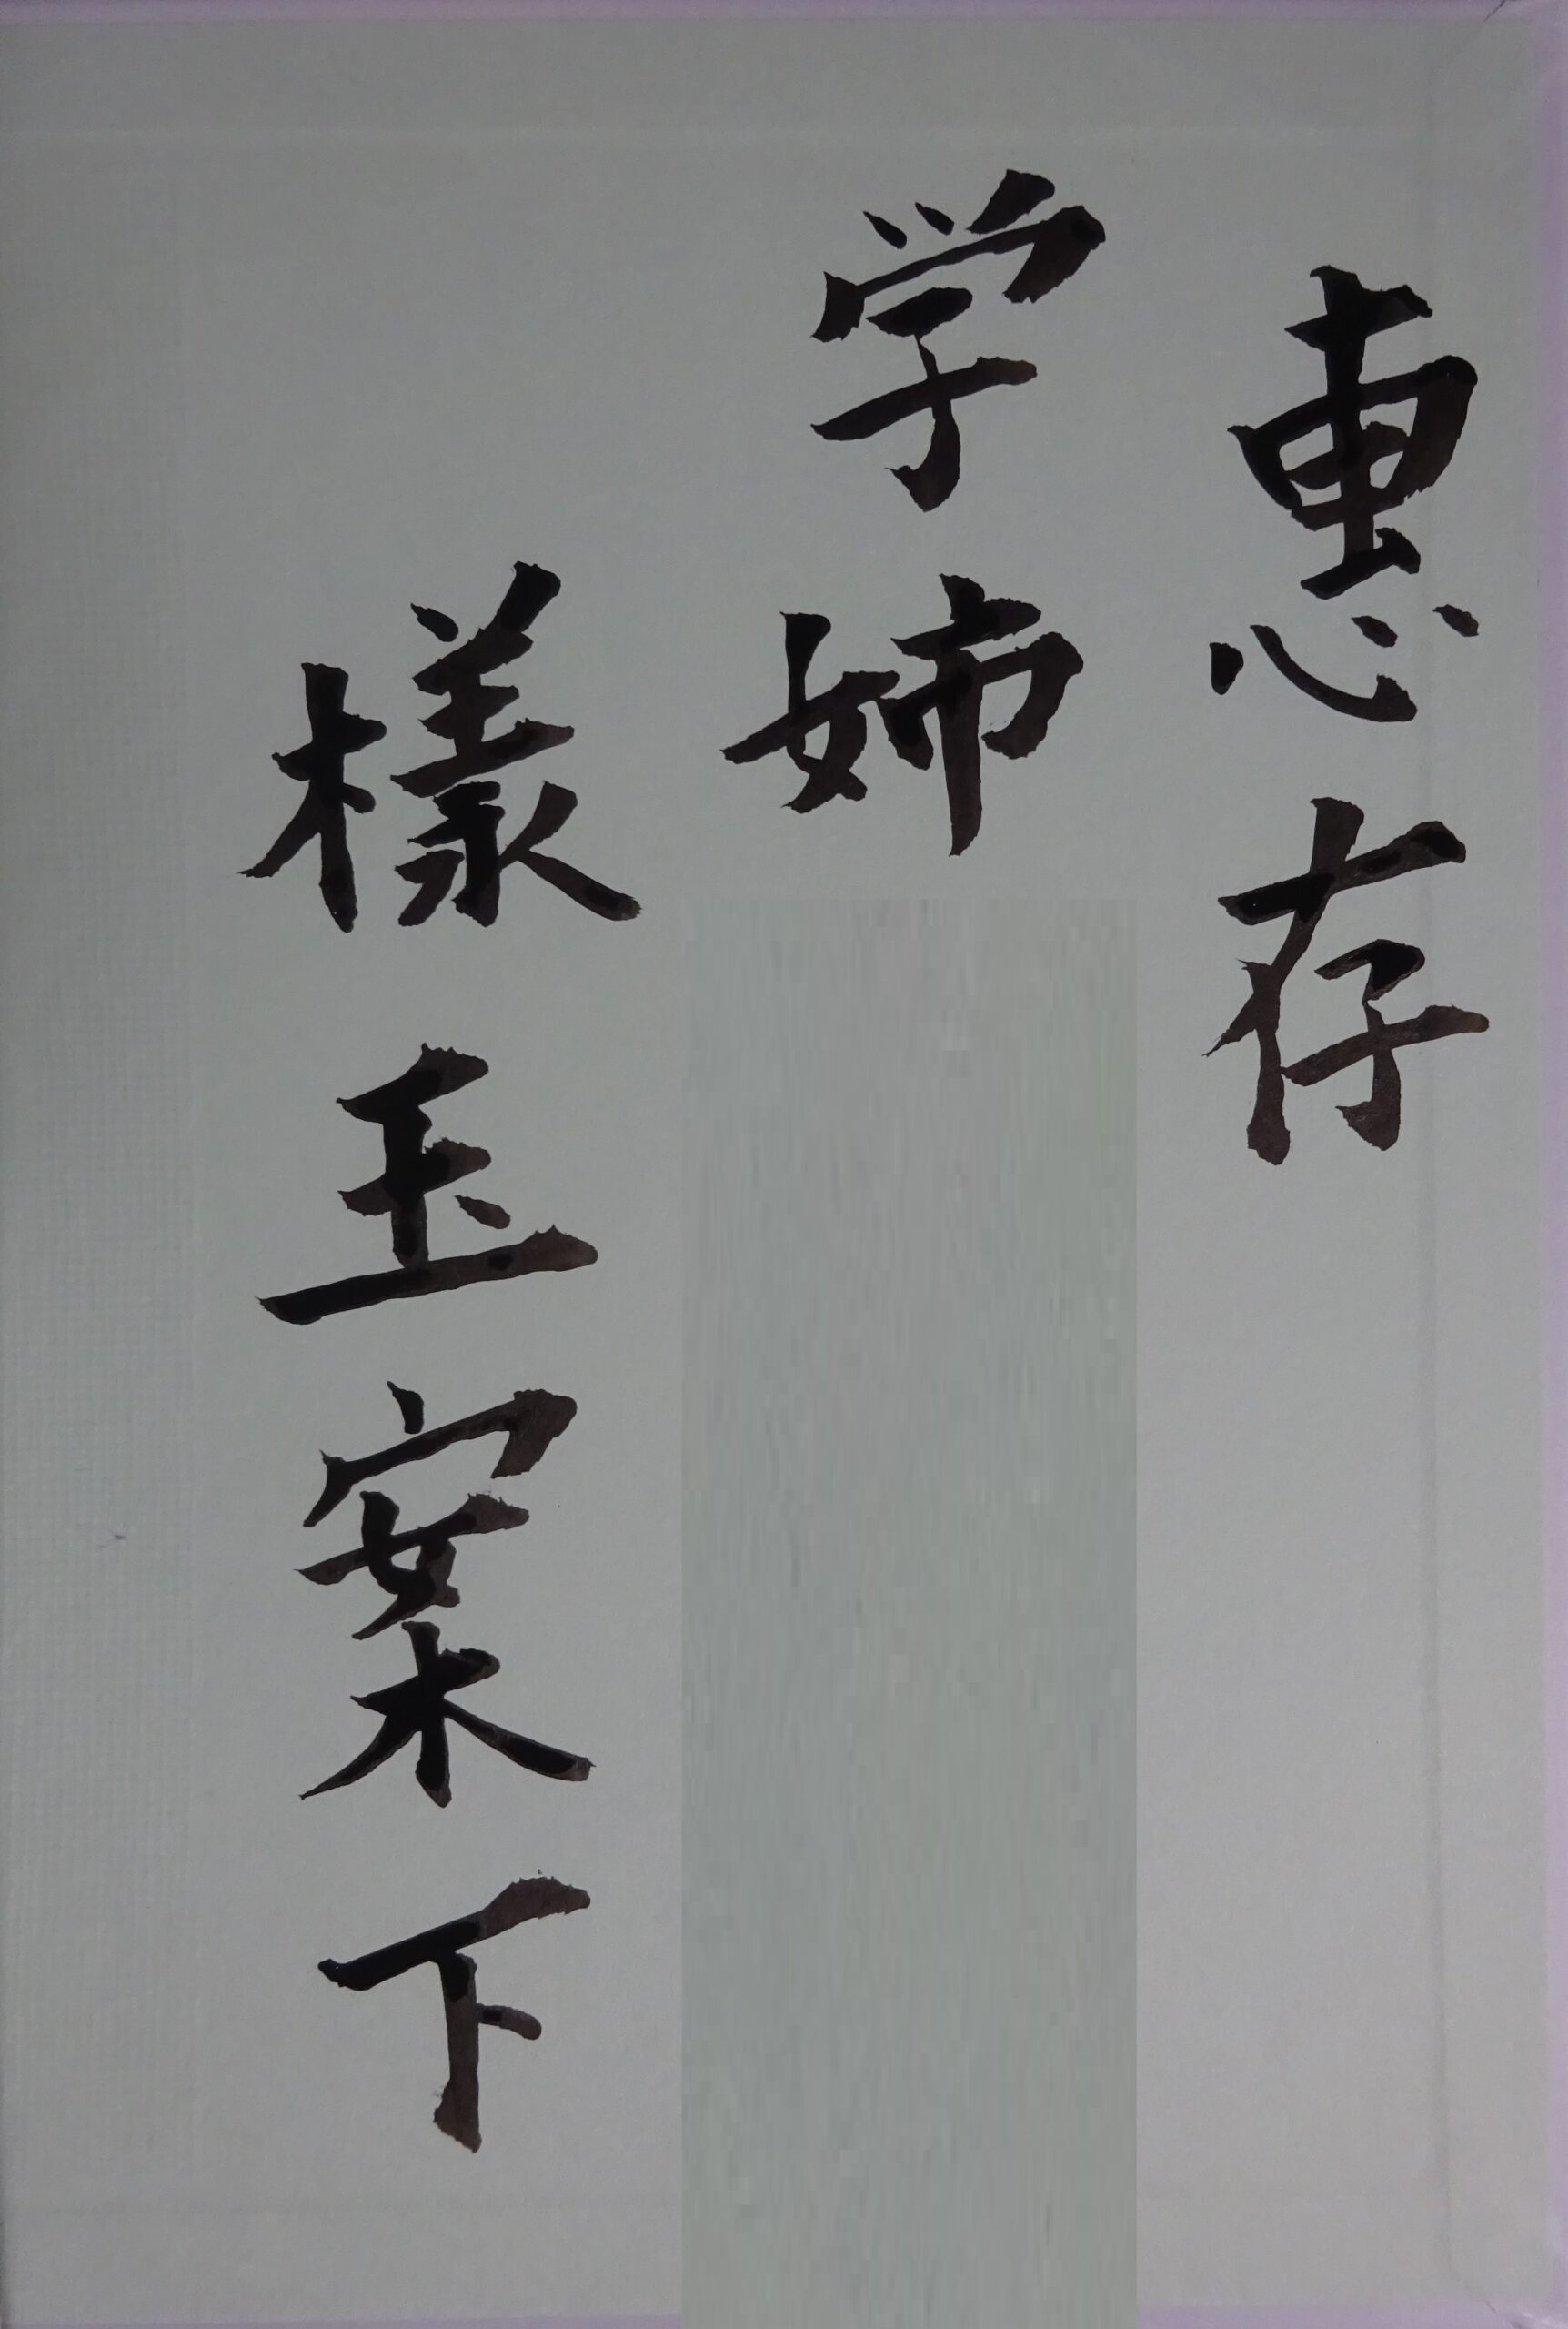 惠存
学姉
樣玉案下